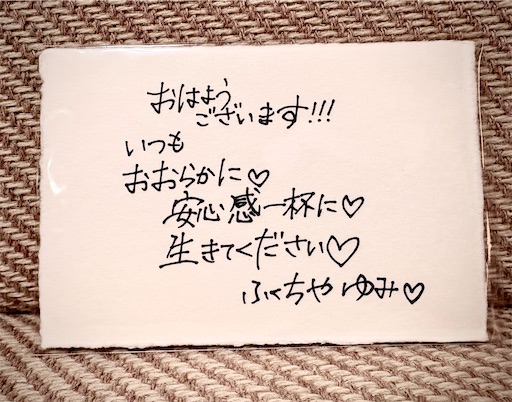 おはよう
ございます!!!
いつも
おおらかに♡
安心感一杯に♡
生きてください♡
ふくちやゆみ♡